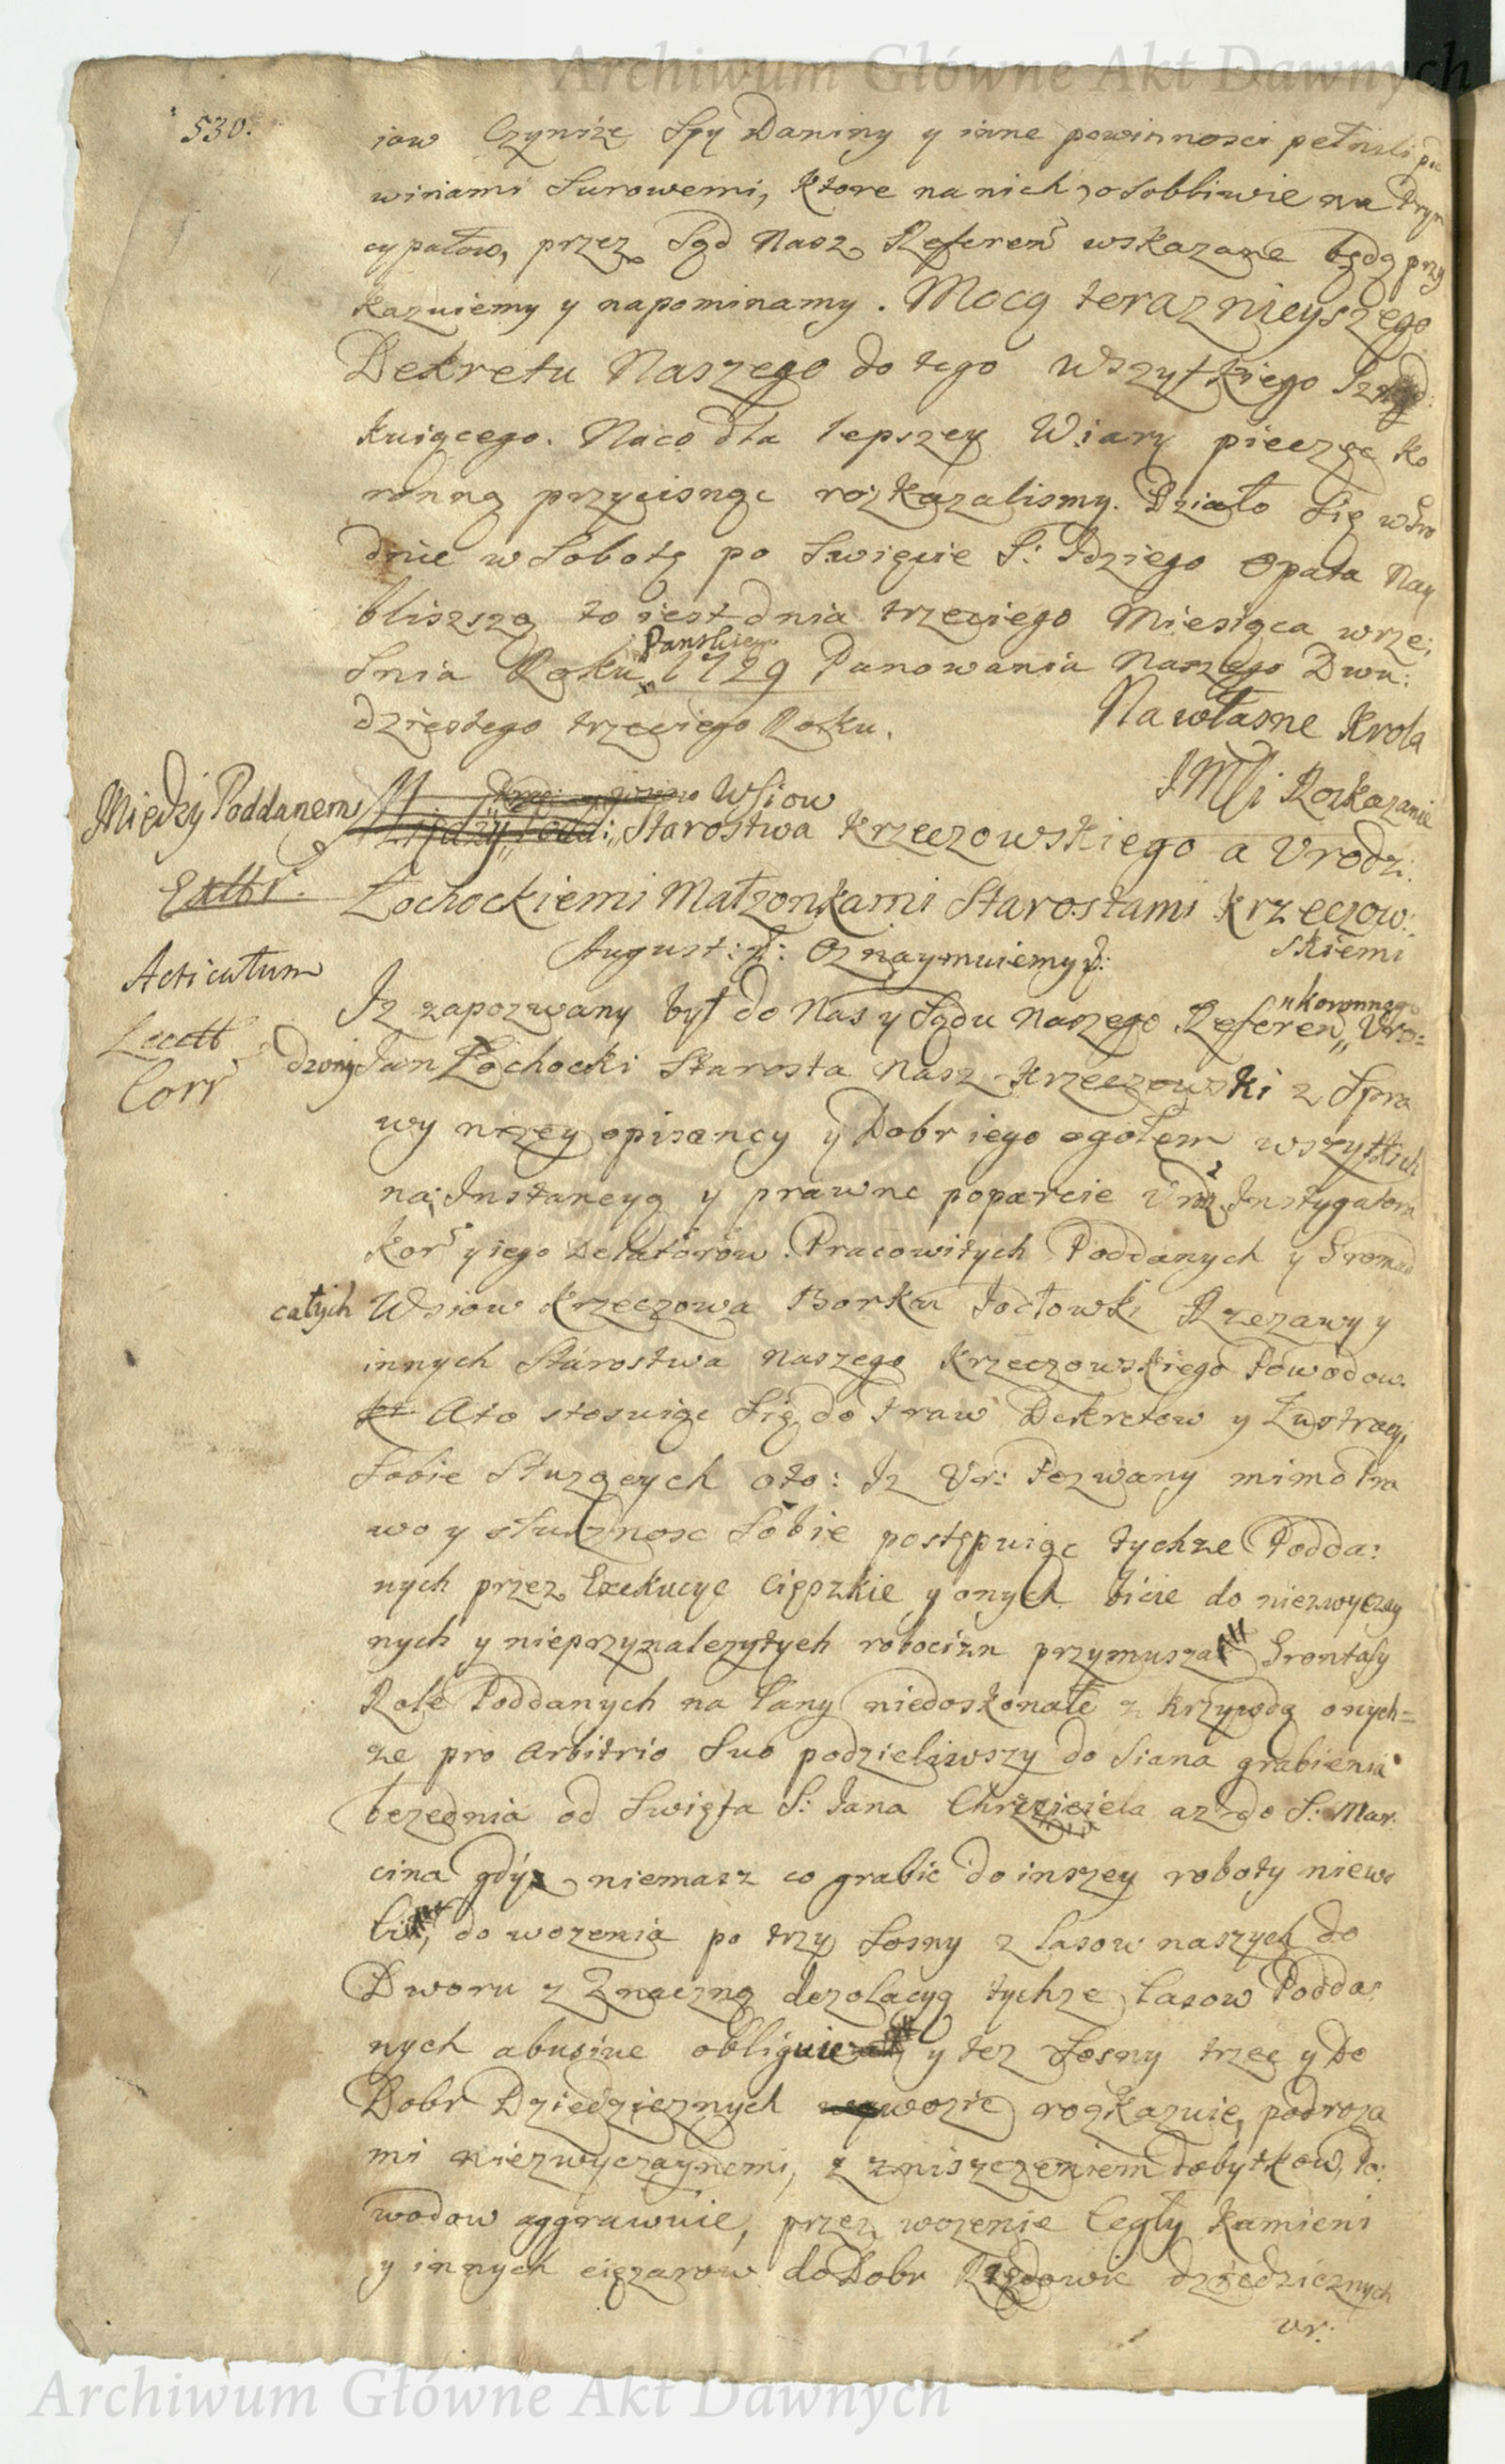 530.
iow Czynsze Spy Daniny y inne powinnosci pełnili pod
winami Surowemi, ktore na nich, osobbliwie na Pryn
cypałow, przez Sąd Nasz Referen wskazane będą przy
kazuiemy y napominamy. Mocą terazneyszego
Dekretu Naszego do tego wszytkiego
kuiącego. Naco dla lepszey Wiary pieczęc Ko
ronną przycisnąc rozkazalismy. Działo Się w Gro
dnie w Sobotę po Swięcie S: Idziego Opata Nay
bliszszą to iest dnia trzeciego Miesiąca wrze:
snia Roku Panskiego 1729 Panowania Naszego Dwu:
dziestego trzeciego Roku.
Na własne Krola
JMci Rozkazanie
Między Poddanem Wsiow
Starostwa Krzeczowskiego a Urodz:
Łochockiemi Małzonkami Starostami Krzeczow:
skiemi
August: &: Oznaymuiemy &:
Acticatum
Iz zapozwany był do Nas y Sądu Naszego Referen "koronnego" Uro=
Lectt
Corr
dzony Jan Łochocki Starosta Nasz Krzeczowski z Spra
wy nizey opisaney y Dobr iego ogołem wszytkich
na Instancyą y prawne poparcie Ur Instygatora
Kor y iego Delatorow. Pracowitych Poddanych y Gromad
całych Wsiow Krzeczowa Borku Jodłowki Rzezawy y
innych Starostwa Naszego Krzeczowskiego Powodow.
Ato stosuiąc Się do Praw Dekretow y Lustracyi
Sobie Słuzących oto: Iz Ur: Pozwany mimo Pra
wo y słusznosc Sobie postępuiąc tychze Podda:
nych przez Exekucye Cięszkie y onych bicie do niezwyczay
nych y nieprzynalezytych robocizn przymusza Gronta Sy
Role Poddanych na łany niedoskonałe z krzywdą onych=
ze pro Arbitrio Suo podzieliwszy do Siana grabienia
bezednia od Swięta S: Jana Chrzciciela az do S: Mar:
cina gdyz niemasz co grabic do inszey roboty niewo
li, do wozenia po trzy Sosny z lasow naszych do
Dworu z Znaczną dezolacyą tychze lasow Podda:
nych abusive obliguie y tez Sosny trzec y do
Dobr Dziedzicznych wozic rozkazuie, podroza
mi niezwyczaynemi, z zniszczeniem dobytkow, Po:
wodow aggrawuie, przez wozenie Cegły Kamieni
y innych ciężarow do Dobr dziedzicznych
Ur:
Archiwum Główne Akt Dawnych
Archiwum Główne Akt Dawnych